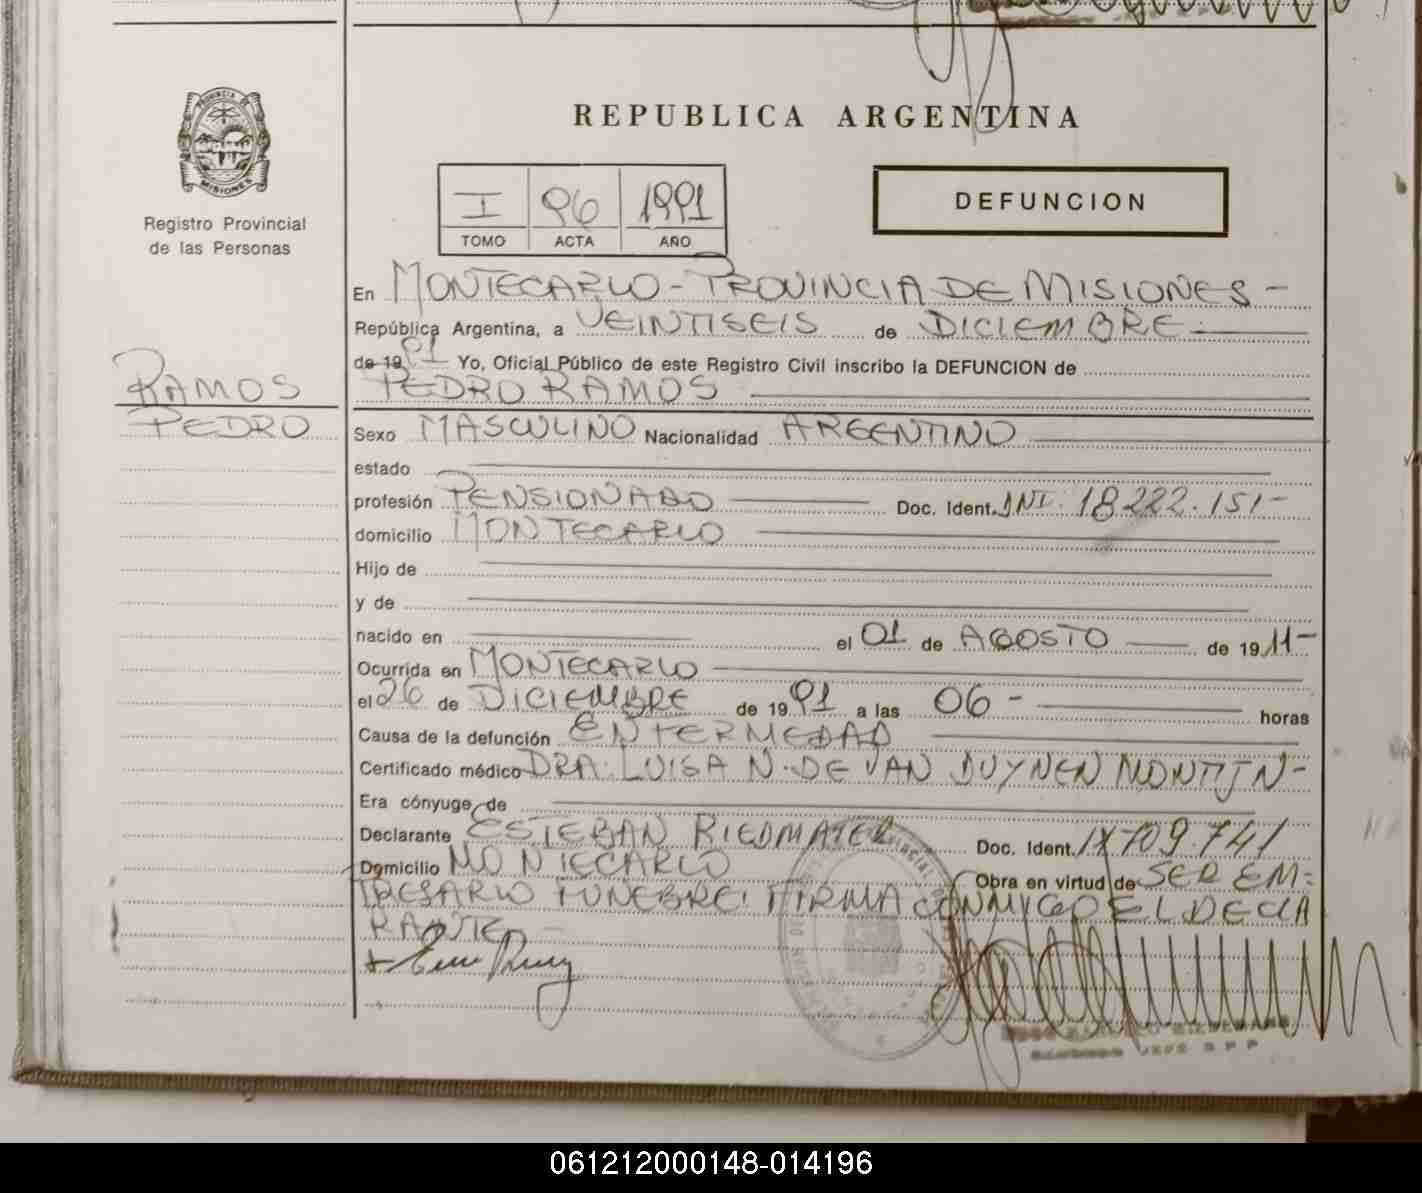 REPUBLICA ARGENTINA
PROVINCIA DE
MISIONES
Registro Provincial
de las Personas
I 96 1991
TOMO ACTA AÑO
DEFUNCION
En MONTECARLO - PROVINCIA DE MISIONES -
República Argentina, a VEINTISEIS de DICIEMBRE
de 19 91 Yo, Oficial Público de este Registro Civil inscribo la DEFUNCION de
PEDRO RAMOS
RAMOS
PEDRO
Sexo MASCULINO Nacionalidad ARGENTINO
estado
profesión PENSIONADO Doc. Ident. DNI. 18.222.151-
domicilio MONTECARLO
Hijo de
y de
nacido en el 01 de AGOSTO de 19 11-
Ocurrida en MONTECARLO
el 26 de DICIEMBRE de 19 91 a las 06 - horas
Causa de la defunción ENFERMEDAD
Certificado médico DRA. LUISA N. DE VAN DUYNEN MONTIJN-
Era cónyuge de
Declarante ESTEBAN RIEDMAIER Doc. Ident. 1X709.741
Domicilio MONTECARLO Obra en virtud de SER EM=
PRESARIO FUNEBRE. FIRMA CONMIGO EL DECLA
RANTE
061212000148-014196